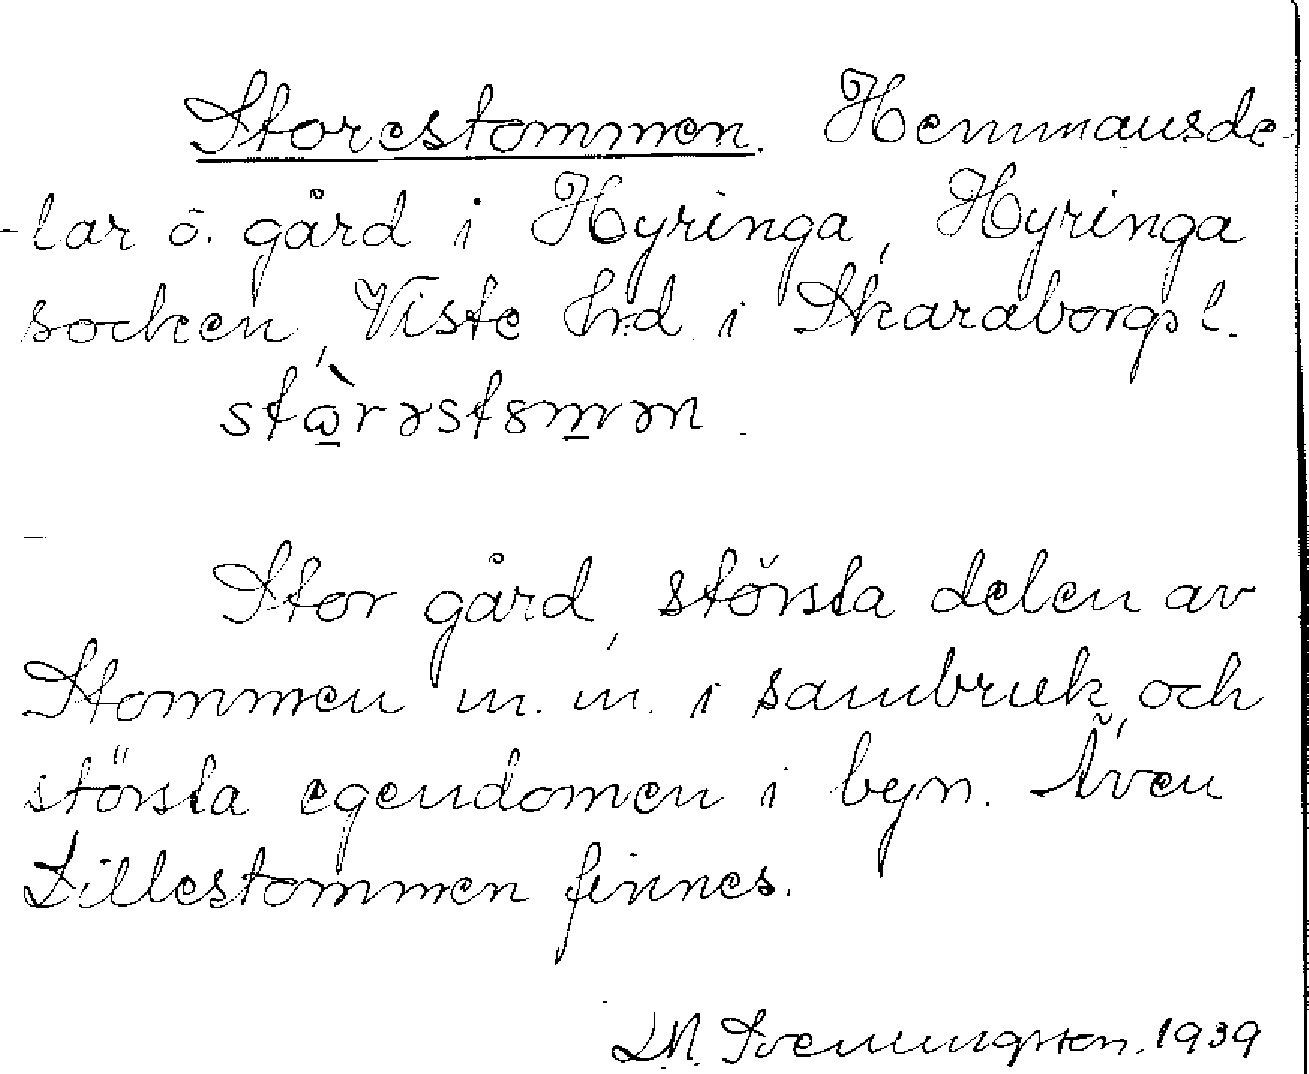 Storestommen. Hemmansde-
-lar o. gård i Hyringa, Hyringa
socken, Viste hrd i Skaraborgs l.
Stor gård, största delen av
Stommen m. m. i sambruk, och
största egendomen i byn. Även
Lillestommen finnes.
Svenungsson. 1939